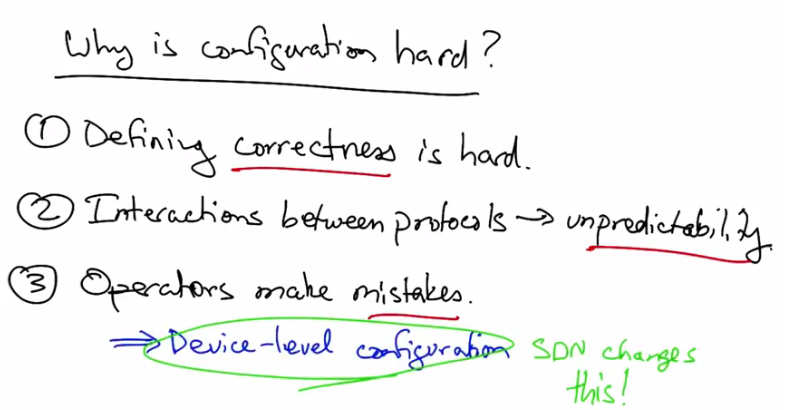 Why is configuration hard?
① Defining correctness is hard.
② Interactions between protocols → unpredictability.
③ Operators make mistakes.
⇒ Device-level configuration SDN changes
this!